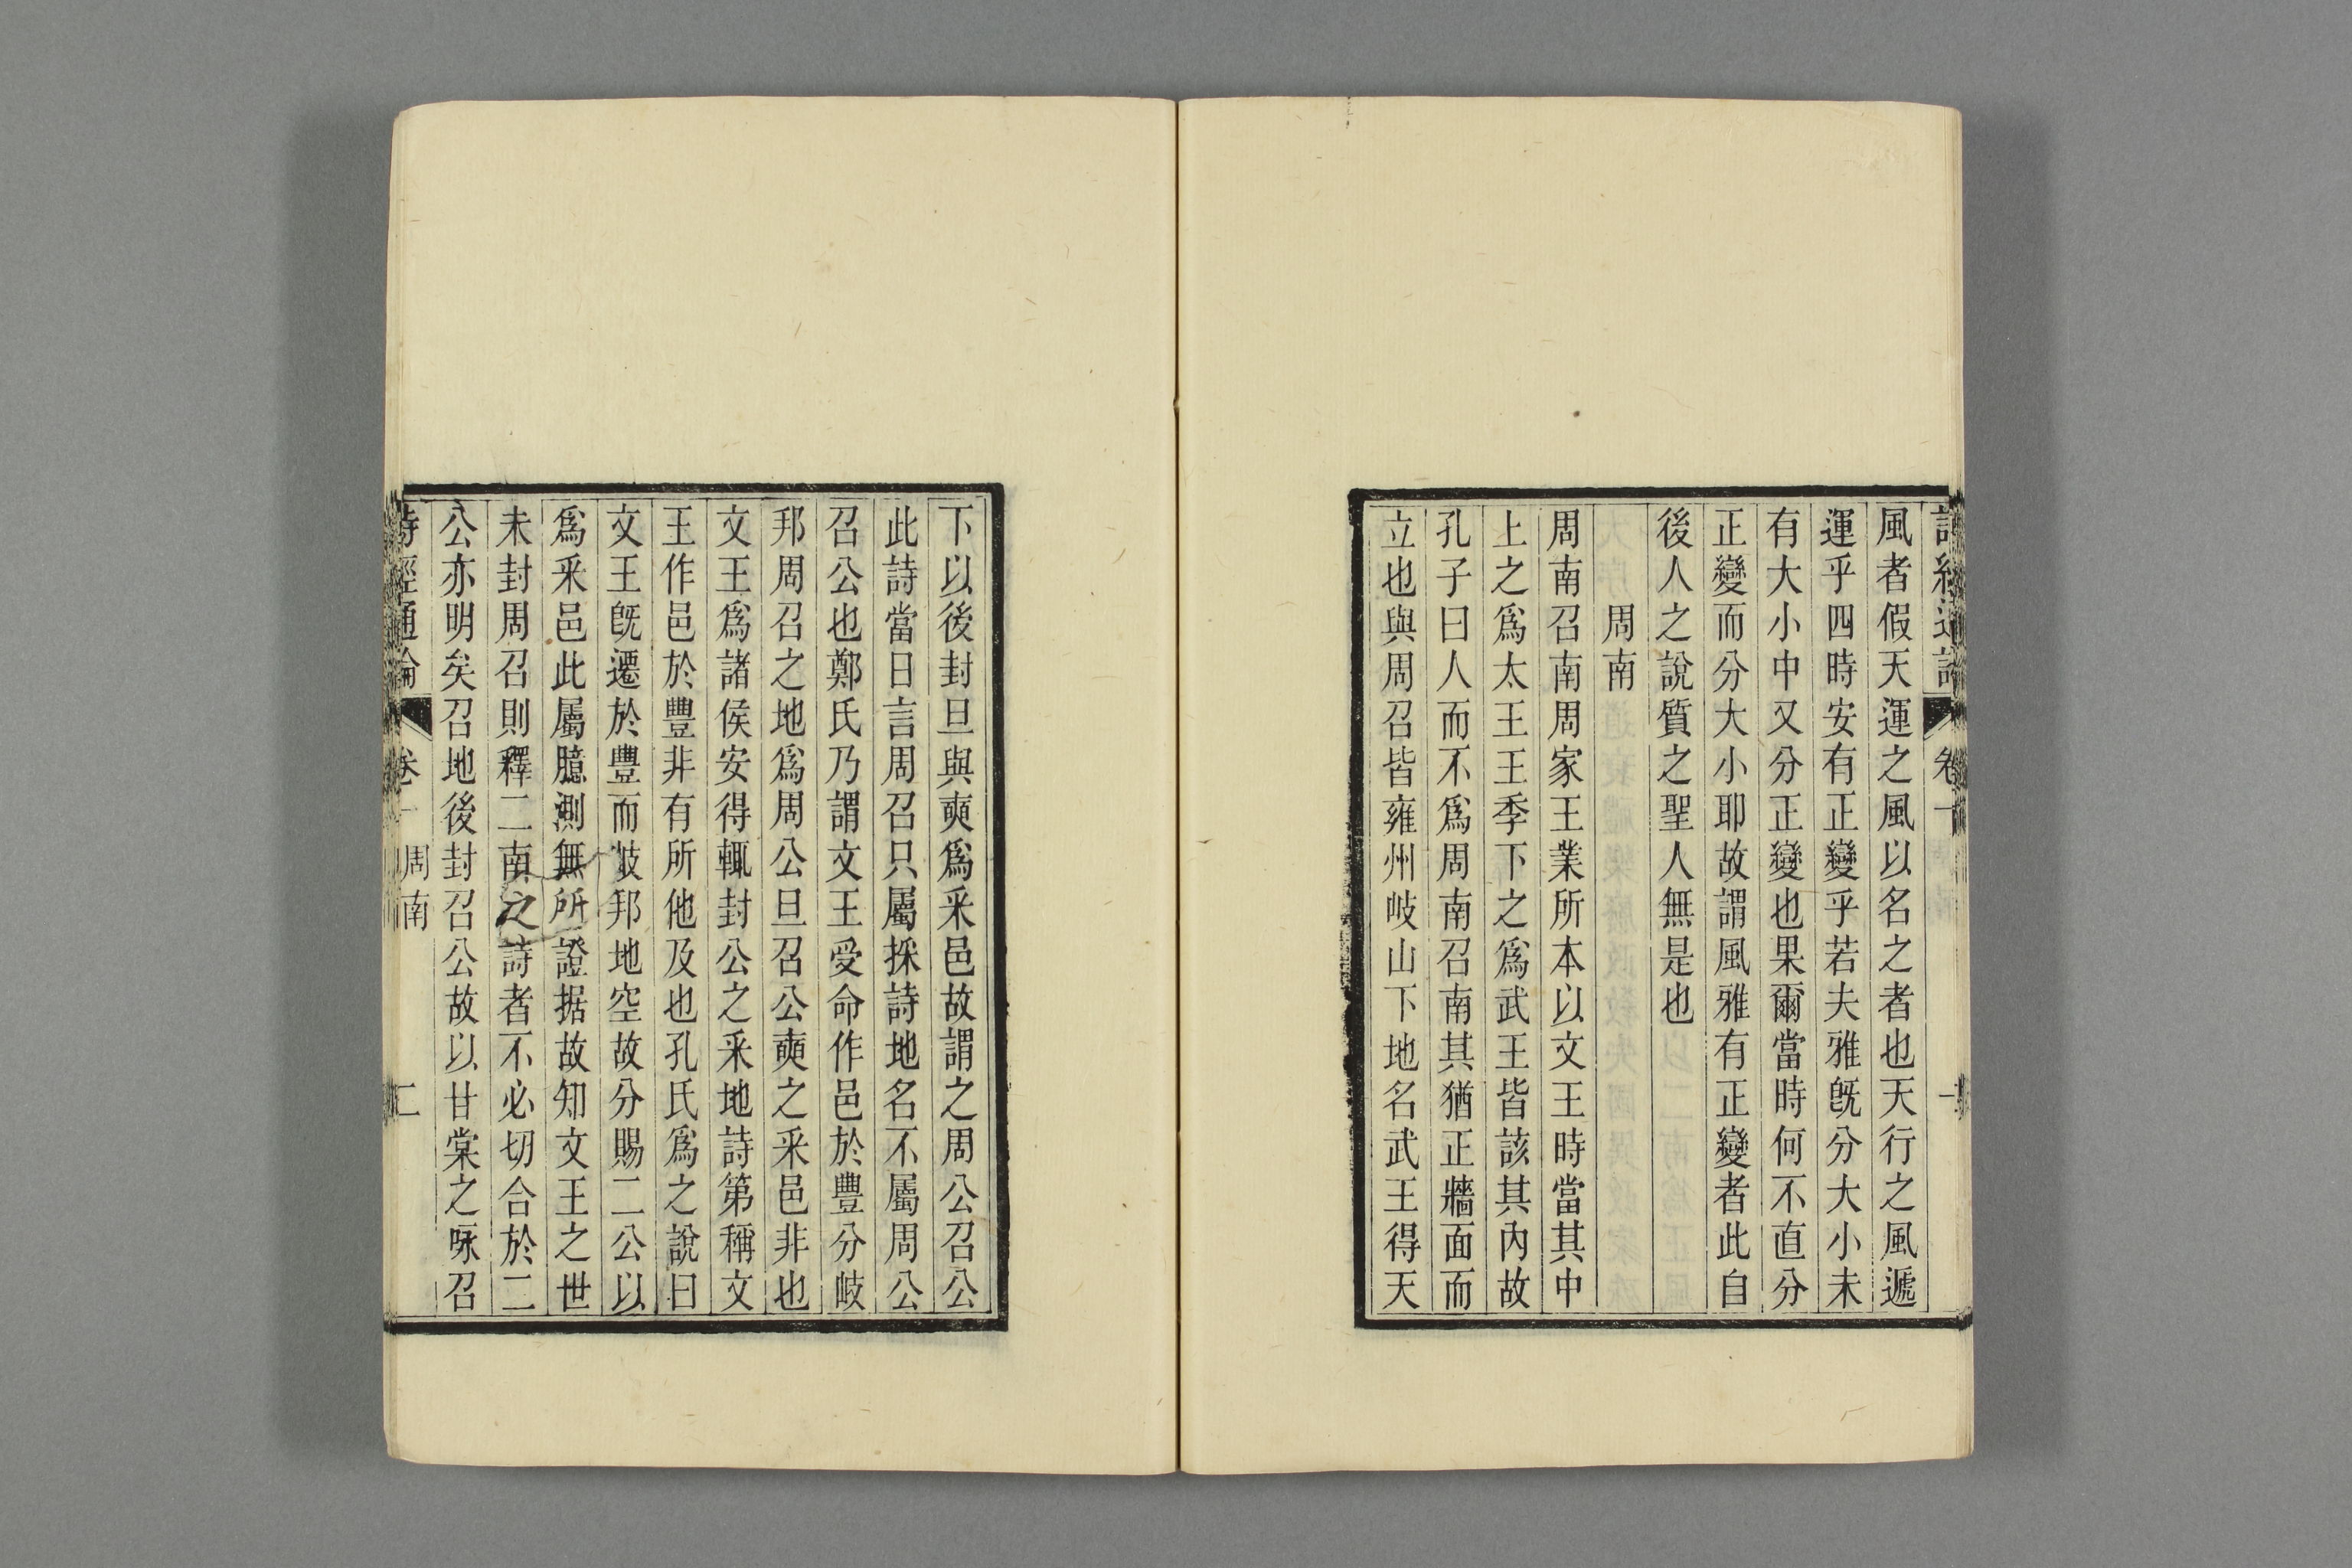 風者假天運之風以名之者也天行之風遞
運乎四時安有正變乎若夫雅既分大小未
有大小中又分正變也果爾當時何不直分
正變而分大小耶故謂風雅有正變者此自
後人之說質之聖人無是也
周南
周南召南周家王業所本以文王時當其中
上之爲太王王季下之爲武王皆該其內故
孔子曰人而不爲周南召南其猶正牆面而
立也與周召皆雍州岐山下地名武王得天
下以後封旦與奭爲采邑故謂之周公召公
此詩當日言周召只屬採詩地名不屬周公
召公也鄭氏乃謂文王受命作邑於豐分岐
邦周召之地爲周公旦召公奭之采邑非也
文王爲諸侯安得輒封公之采地詩第稱文
王作邑於豐非有所他及也孔氏爲之說曰
文王旣遷於豐而岐邦地空故分賜二公以
爲采邑此屬臆測無所證据故知文王之世
未封周召則釋二南之詩者不必切合於二
公亦明矣召地後封召公故以甘棠之咏召
詩經通論 卷一 周南 二